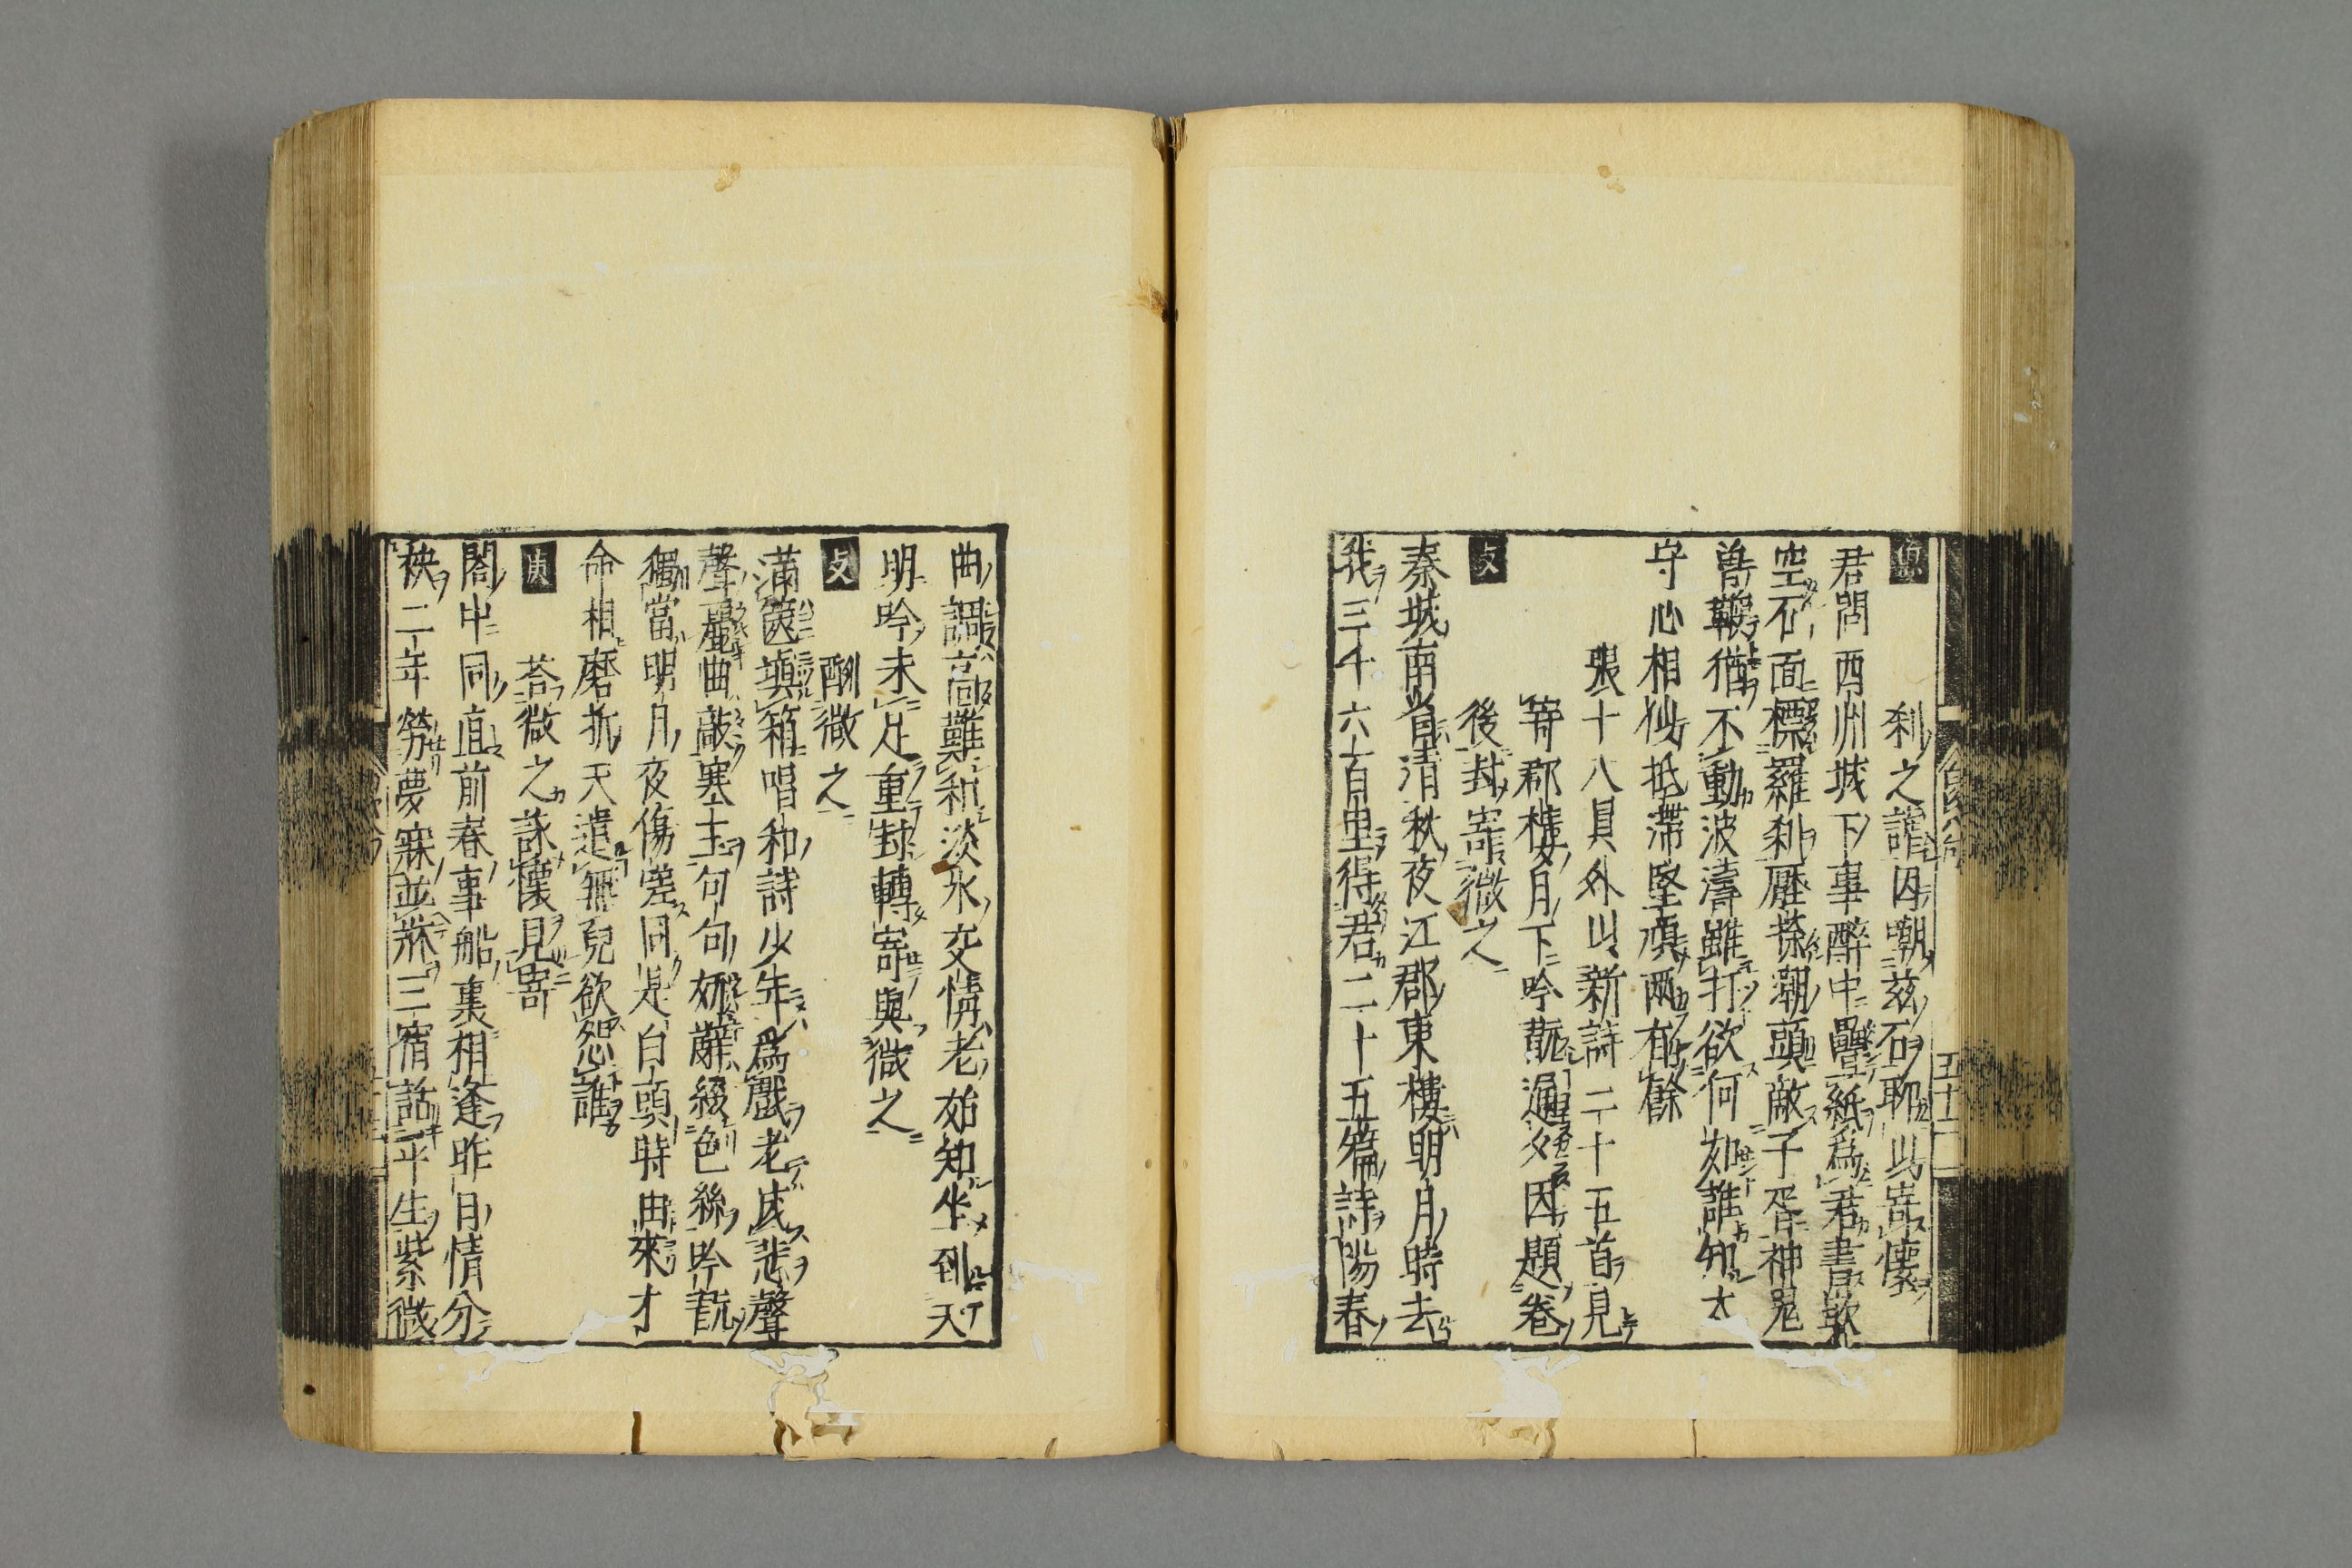 魚 刹之謔因嘲茲石聊此寄懷
君問西州城下事醉中疊紙爲君書嵌
空石面標羅刹壓捺潮頭敵子胥神鬼
曽鞭猶不動波濤雖打欲何如誰知太
守心相似抵滯堅頑兩有餘
張十八員外以新詩二十五首見
寄郡樓月下吟翫通夕因題卷
支 後封寄微之
秦城南省清秋夜江郡東樓明月時去
我三千六百里得君二十五篇詩陽春
曲調高難和淡水交情老始知坐到天
明吟未足重封轉寄與微之
支 酬微之
滿篋塡箱唱和詩少年爲戲老成悲聲
聲麗曲敲寒玉句句妍辭綴色絲吟翫
獨當明月夜傷嗟同是白頭時由來才
命相磨折天遣無兒欲怨誰
庚 荅微之詠懷見寄
閤中同直前春事船裏相逢昨日情分
袂二年勞夢寐並牀三宿話平生紫微